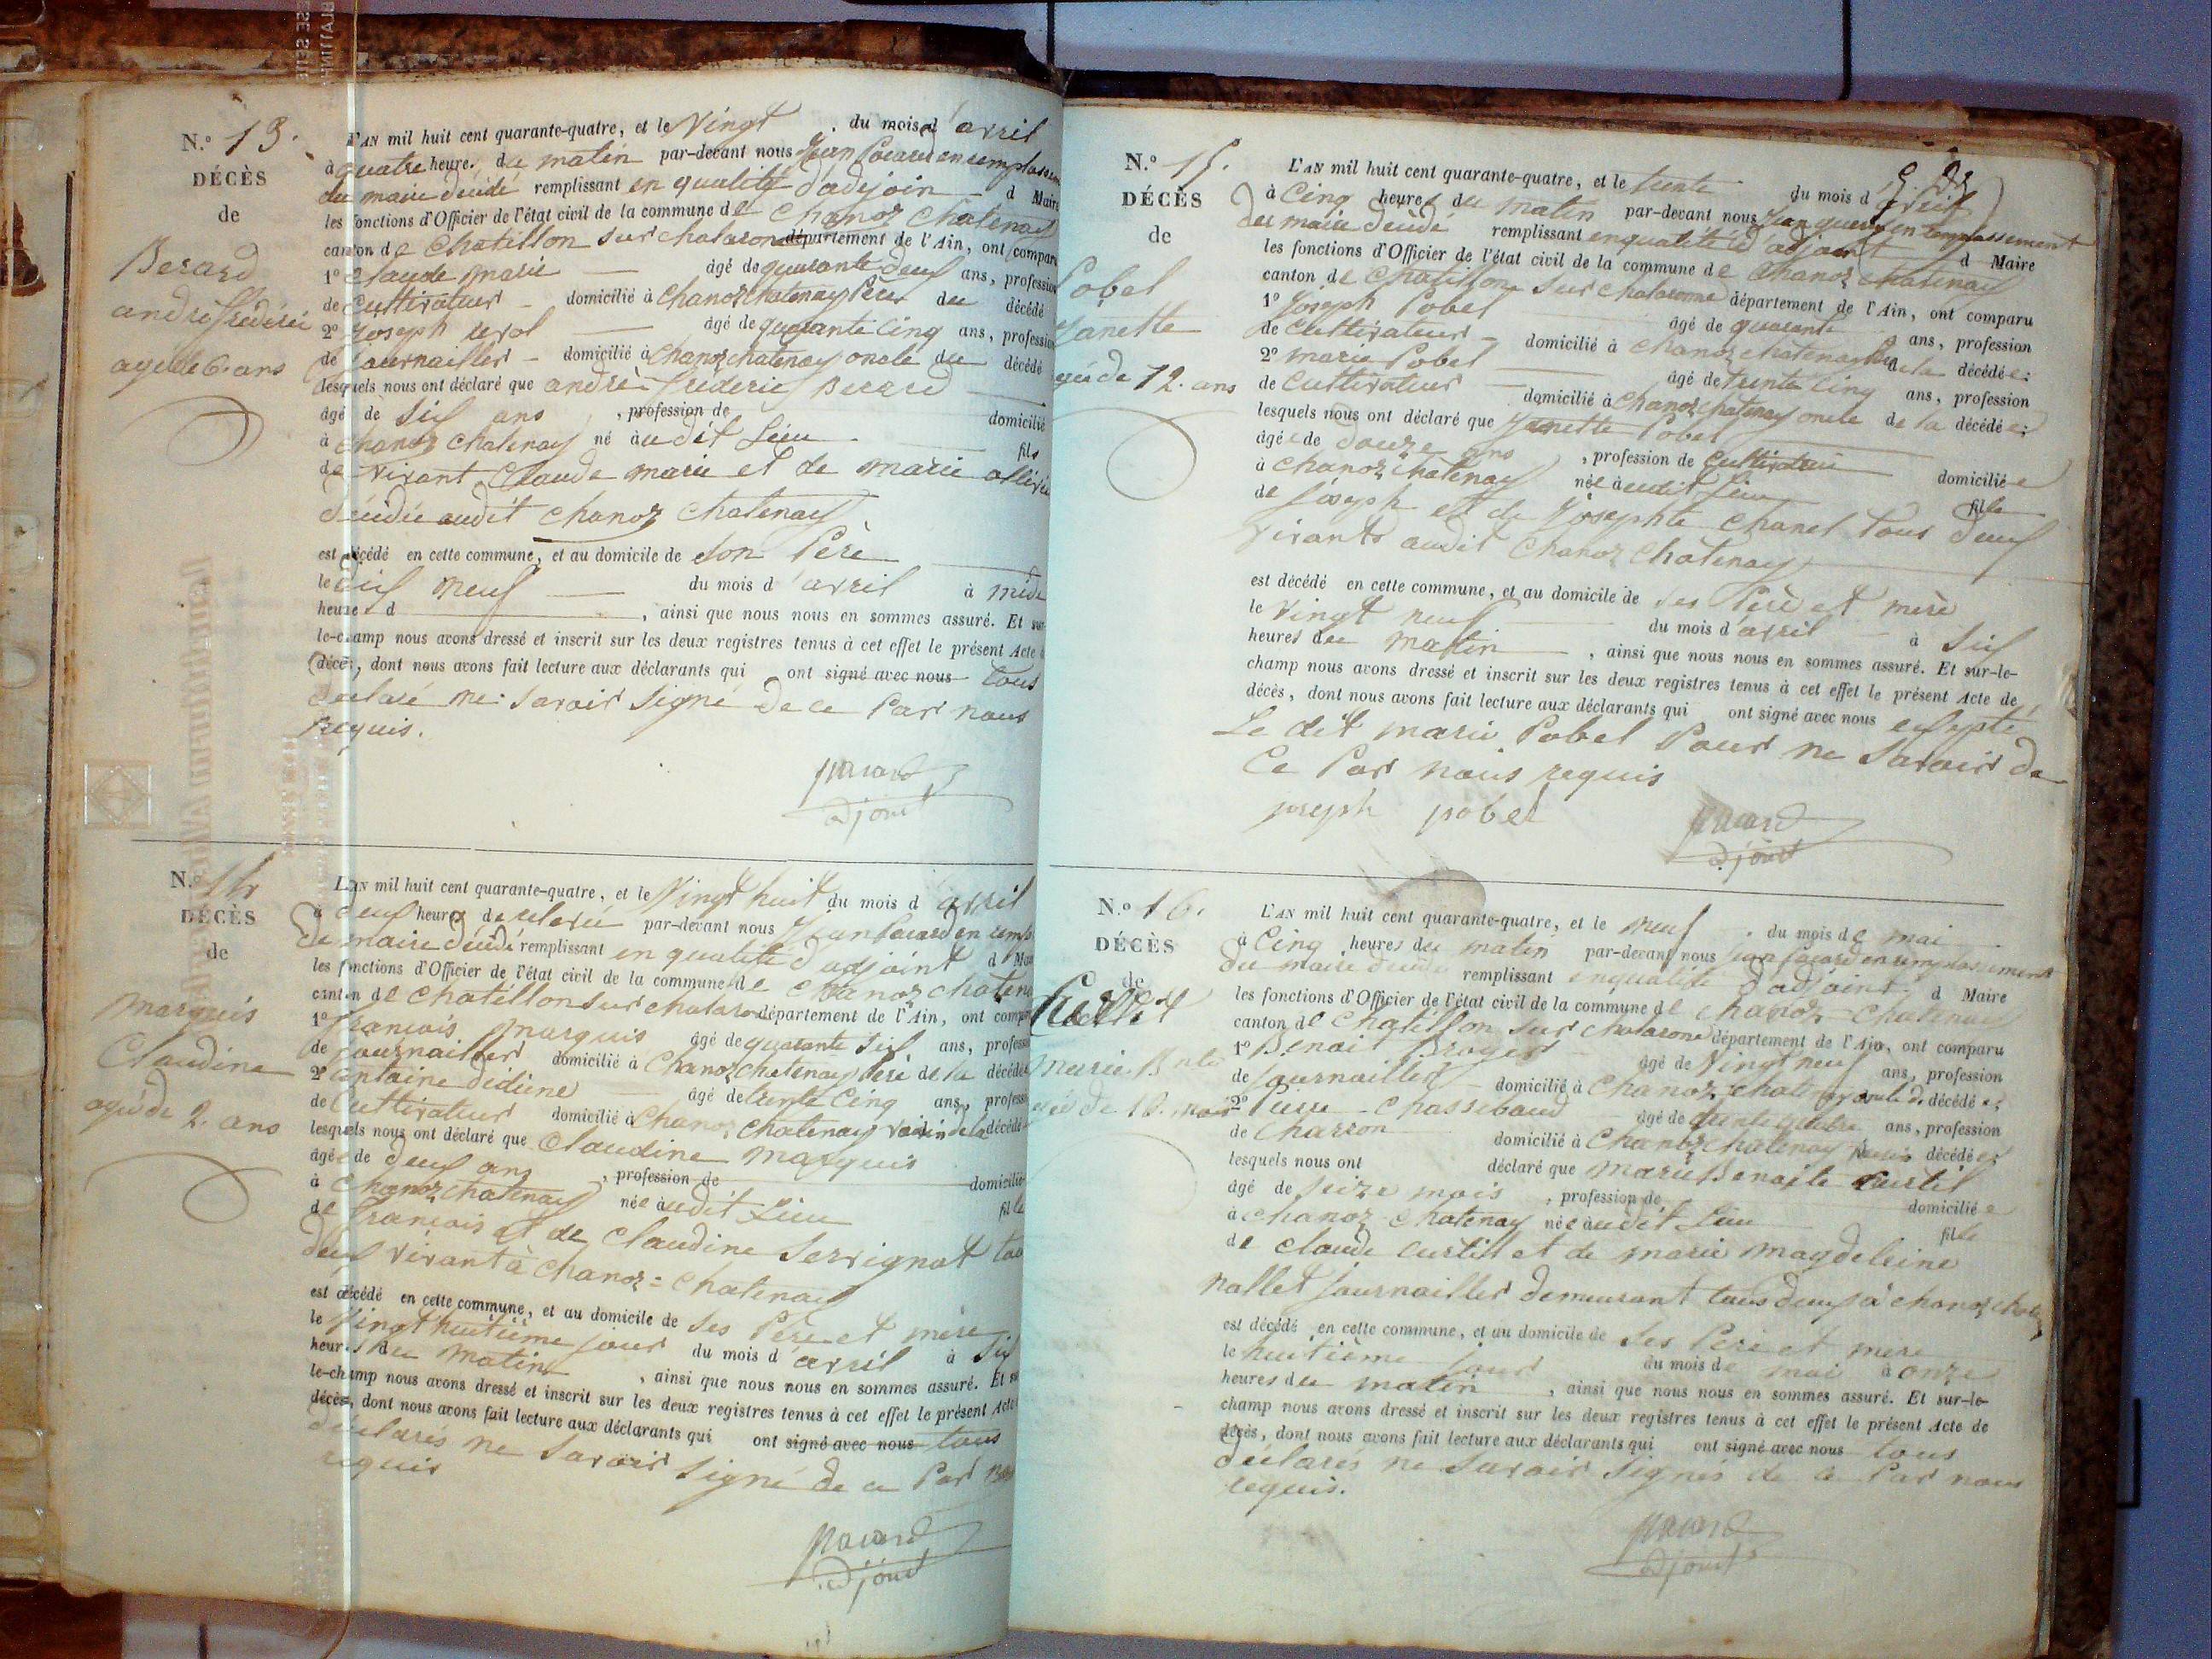 N.º 13.
DÉCÈS
de
Berard
andré frédéric
agé de 6. ans
L'AN mil huit cent quarante-quatre, et le Vingt du mois d'avril
à quatre heure. du matin par-devant nous Jean en
du maire décidé remplissant en qualité d'adejoin d Maire
les fonctions d'Officier de l'état civil de la commune de Chanoz Chatenay
canton de Chatillon sur chalarone département de l'Ain, ont comparu
1º Claude marie âgé de quarante deux ans, profession
de Cultivateur domicilié à Chanoz chatenay Père du décédé
2º Joseph âgé de quarante cinq ans, profession
de Journaillier domicilié à Chanoz chatenay oncle du décédé
lesquels nous ont déclaré que andré frederic Berard
âgé de Six ans , profession de domicilié
à Chanoz Chatenay né audit Lieu fils
de vivant Claude marie et de marie
décidée audit Chanoz Chatenay
est décédé en cette commune, et au domicile de son Père
le dix neuf du mois d'avril à midi
heure d , ainsi que nous nous en sommes assuré. Et sur-
le-champ nous avons dressé et inscrit sur les deux registres tenus à cet effet le présent Acte
décès, dont nous avons fait lecture aux déclarants qui ont signé avec nous tous
declaré ne Savoir Signé de ce Par nous
requis.
adjoint
N.º 14
DÉCÈS
de
marquis
Claudine
agée de 2. ans
L'AN mil huit cent quarante-quatre, et le Vingt huit du mois d'avril
à deux heures de relevée par-devant nous Jean en
du maire décidé remplissant en qualité d'adjoint d
les fonctions d'Officier de l'état civil de la commune de Chanoz
canton de Chatillon sur chalarone département de l'Ain, ont
1º François marquis âgé de quarante Six ans, profession
de Journaillier domicilié à Chanoz chatenay Père de la décédée
2º antoine didiene âgé de trente Cinq ans, profession
de Cultivateur domicilié à Chanoz Chatenay voisin de la décédée
lesquels nous ont déclaré que Claudine marquis
âgée de deux ans , profession de domicilié
à Chanoz chatenay née audit Lieu fille
de François et de Claudine Servignat
deux vivant à Chanoz=Chatenay
est décédé en cette commune, et au domicile de Ses Père et mère
le Vingt huitième jour du mois d avril à Six
heures du matin , ainsi que nous nous en sommes assuré. Et
le-champ nous avons dressé et inscrit sur les deux registres tenus à cet effet le présent Acte
décès, dont nous avons fait lecture aux déclarants qui ont signé avec nous tous
déclarés ne Savoir Signé de ce Par
requis
adjoint
N.º 15.
DÉCÈS
de
Pobel
Janette
agée de 12. ans
L'AN mil huit cent quarante-quatre, et le trente du mois d'avril
à Cinq heures du matin par-devant nous Jean en remplassement
du maire décidé remplissant en qualité d'adjoint d Maire
les fonctions d'Officier de l'état civil de la commune de Chanoz Chatenay
canton de Chatillon sur chalaronne département de l'Ain, ont comparu
1º Joseph Pobel âgé de quarante ans, profession
de Cultivateur domicilié à Chanoz chatenay de la décédée
2º marie Pobel âgé de trente Cinq ans, profession
de Cultivateur domicilié à Chanoz chatenay oncle de la décédée
lesquels nous ont déclaré que Janette Pobel
âgée de douze ans , profession de Cultivateur domiciliée
à Chanoz Chatenay née audit Lieu fille
de Joseph et de Josephte Chanel Tous deux
vivants audit Chanoz Chatenay
est décédé en cette commune, et au domicile de ses Père et mère
le Vingt neuf du mois d'avril à Six
heures du matin , ainsi que nous nous en sommes assuré. Et sur-le-
champ nous avons dressé et inscrit sur les deux registres tenus à cet effet le présent Acte de
décès, dont nous avons fait lecture aux déclarants qui ont signé avec nous
Le dit marie Pobel Pour ne Savoir de
Ce Par nous requis
joseph pobel
adjoint
N.º 16.
DÉCÈS
de
Marie
agée de
L'AN mil huit cent quarante-quatre, et le neuf du mois de mai
à Cinq heures du matin par-devant nous Jean en remplassement
du maire décidé remplissant en qualité d'adjoint d Maire
les fonctions d'Officier de l'état civil de la commune de Chanoz Chatenay
canton de Chatillon sur chalarone département de l'Ain, ont comparu
1º Benoit Broyer âgé de Vingt neuf ans, profession
de Journaillier domicilié à Chanoz chatenay décédée
2º Pierre Chassibaud âgé de trente quatre ans, profession
de Charron domicilié à Chanoz Chatenay décédée
lesquels nous ont déclaré que Marie Benoite Curtil
âgé de Seize mois , profession de domiciliée
à Chanoz Chatenay née audit Lieu fille
de Claude Curtil et de marie magdeleine
nallet Journaillier demeurant tous deux à Chanoz
est décédé en cette commune, et au domicile de Ses Père et mère
le huitième jour du mois de mai à onze
heures du matin , ainsi que nous nous en sommes assuré. Et sur-le-
champ nous avons dressé et inscrit sur les deux registres tenus à cet effet le présent Acte de
décès, dont nous avons fait lecture aux déclarants qui ont signé avec nous tous
déclarés ne Savoir Signés de ce Par nous
requis.
adjoint